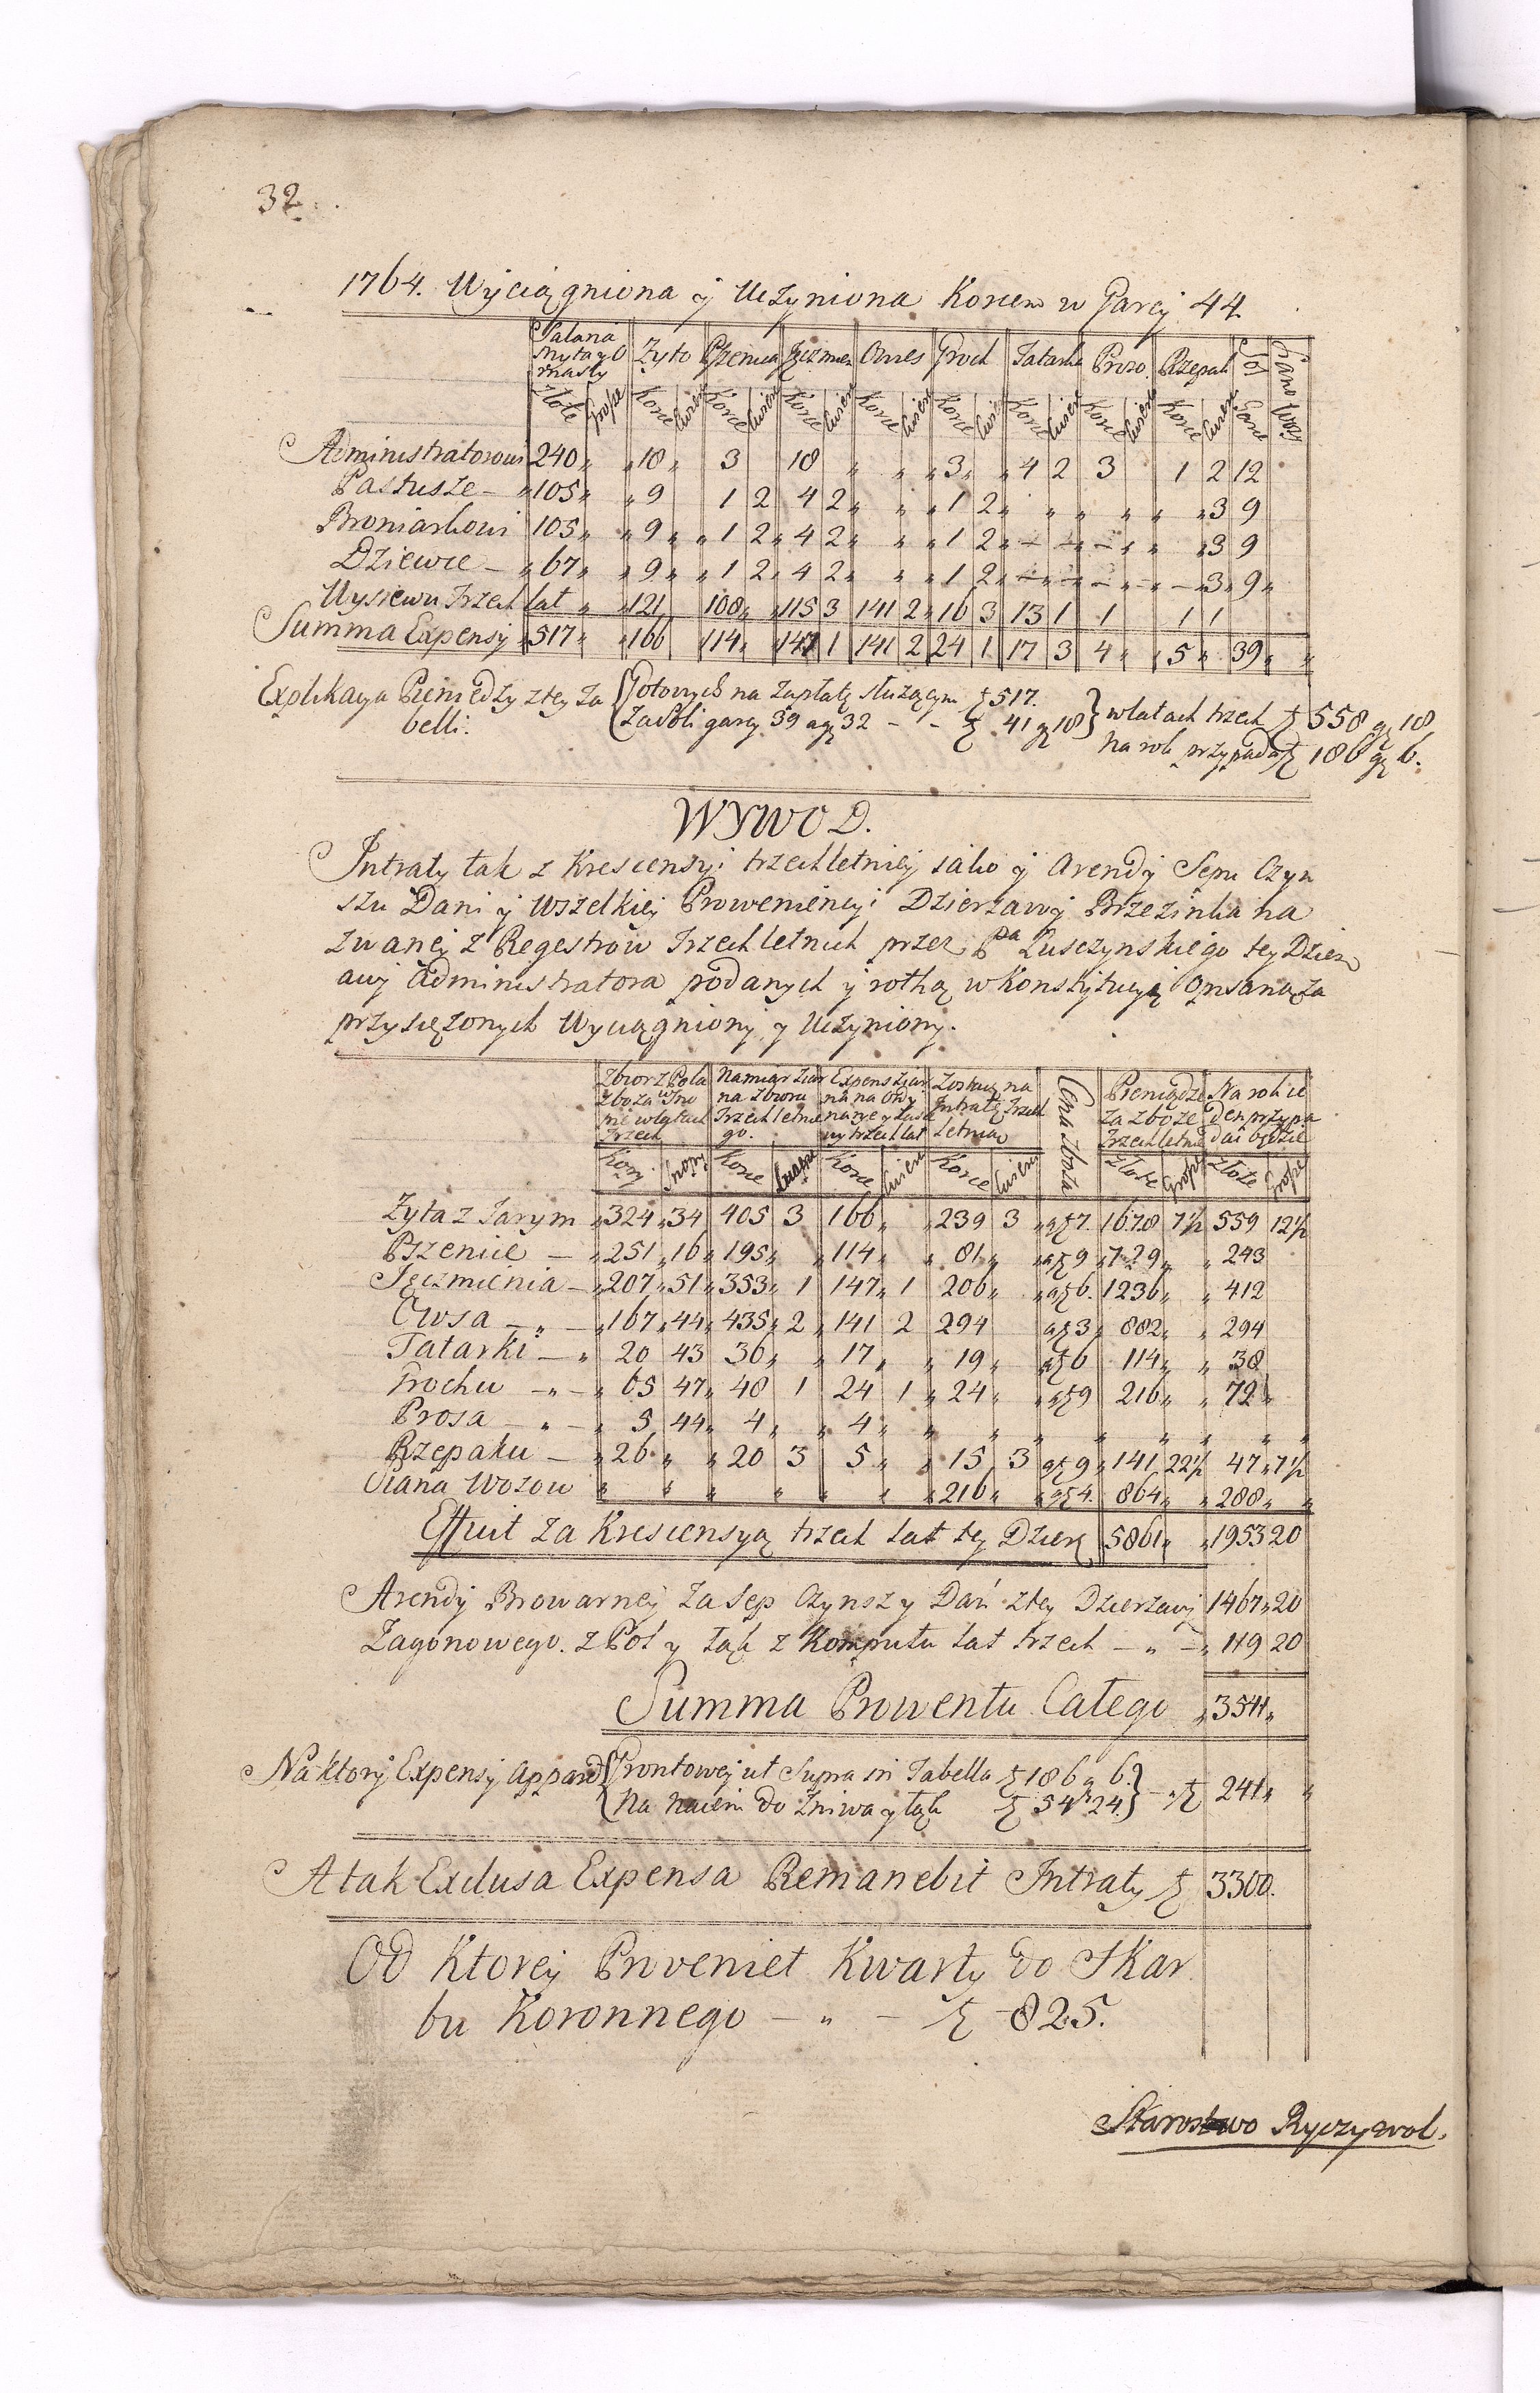 32.
1764. Wyciągniona y Uczyniona Korcem w Garcy 44.
Salaria myta y O rnasty | Zyto | Pszenica | Jęczmien | Owies | Groch | Tatarka | Prozo. | Rzepak | Sol | Siano Wozy
Złote | Grosze | Korce | Cwierc | Korce | Cwierc | Korce | Cwierc | Korce | Cwierc | Korce | Cwierc | Korce | Cwierc | Korce | Cwierc | Korce | Cwierc | Garce
Administratorowi 240 „ „ 18 „ 3 18 „ „ „ 3 „ „ 4 2 3 1 2 12
Pastusze — „ 105 „ „ 9 1 2 4 2 „ „ „ 1 2 „ „ „ „ „ „ „ 3 9
Broniarkowi 105 „ „ 9 „ „ 1 2 „ 4 2 „ „ „ 1 2 „ — „ — „ — „ „ „ 3 9
Dziewce — „ 67 „ „ 9 „ „ 1 2 „ 4 2 „ „ „ 1 2 „ — „ — „ — „ — „ — 3 „ 9 „
Wysiewu Trzech lat „ „ 121 108 „ „ 115 3 141 2 „ 16 3 13 1 1 1 1
Summa Expensy „ 517 „ „ 166 114 „ „ 147 1 141 2 24 1 17 3 4 „ „ 5 „ 39 „ „
Explikacya Pieniędzy z tey Ta { Gotowych na zapłatę służącym zł 517. } w latach trzech zł 558 gr 18
belli: { Za Soli garcy 39 a gr 32 - - zł 41 gr 18 } na rok przypada zł 186 gr 6.
WYWOD.
Intraty tak z Krescensyi trzechletniey iako y Arendy Sepu Czyn
szu Dani y Wszelkiey Proweniencyi Dzierzawy Brzezinka na
zwaney z Regestrow Trzechletnich przez Pa Lusczynskiego tey Dzierz
awy Administratora podanych y rothą w Konstytucyi Opisaną za
przysięzonych Wyciągniony y Uczyniony.
Zbior z Pola Zboza w Sno pie w latach Trzech | Namiar Ziar na z Zbioru Trzechletnie go. | Expens Ziar na na Ordy narye y Zasie wy trzech lat | Zostaie na Intratę Trzech Letnią | Cena Zboza | Pieniądze za zboze Trzechletnie | Na rok ie den przypa dać będzie
Kopy | Snopy | Korce | Cwierc | Korce | Cwierc | Korce | Cwierc | Złote | Grosze | Złote | Grosze
Zyta z Jarym „ 324 „ 34 405 3 166 „ „ 239 3 „ a zł 7. 1678 7½ 559 12½
Pszenice — „ 251 „ 16 „ 195 „ „ 114 „ „ 81 „ „ a zł 9 „ 729 „ „ 243
Jęczmienia — „ 207 „ 51 „ 353 „ 1 147 „ 1 206 „ „ a zł 6. 1236 „ „ 412
Owsa — „ — „ 167 „ 44 „ 435 „ 2 „ 141 2 294 a zł 3 „ 882 „ „ 294
Tatarki — „ 20 43 36 „ „ 17 „ „ 19 „ a zł 6 114 „ „ 38
Grochu — „ — „ 65 47 „ 48 1 24 1 „ 24 „ „ a zł 9 216 „ „ 72 „
Prosa — „ — „ 5 44 „ 4 „ „ 4 „ „ „ „ „ „ „ „
Rzepaku — „ 26 „ „ 20 3 5 „ „ 15 3 a zł 9 „ 141 22½ 47 „ 7½
Siana Wozow „ „ „ „ „ „ „ 216 „ „ a zł 4. 864 „ „ 288 „ „
Effuit za Krescensyą trzech lat tey Dzierz 5861 „ „ 1953 20
Arendy Browarney za Sep Czynsz y Dań z tey Dzierzawy 1467 „ 20
Zagonowego. z Pol y łąk z Komputu lat trzech — „ — „ 119 20
Summa Prowentu Całego „ 3541 „
Na ktory Expensy appared { Grontowey ut Supra in Tabella zł 186 „ 6. } — „ zł 241 „ „
{ Na Naiem do Zniwa y łąk zł 54 „ 24. }
A tak Exclusa Expensa Remanebit Intraty zł 3300.
Od Ktorey Proveniet Kwarty do Skar
bu Koronnego — „ — zł 825.
Starostwo Ryczywol.